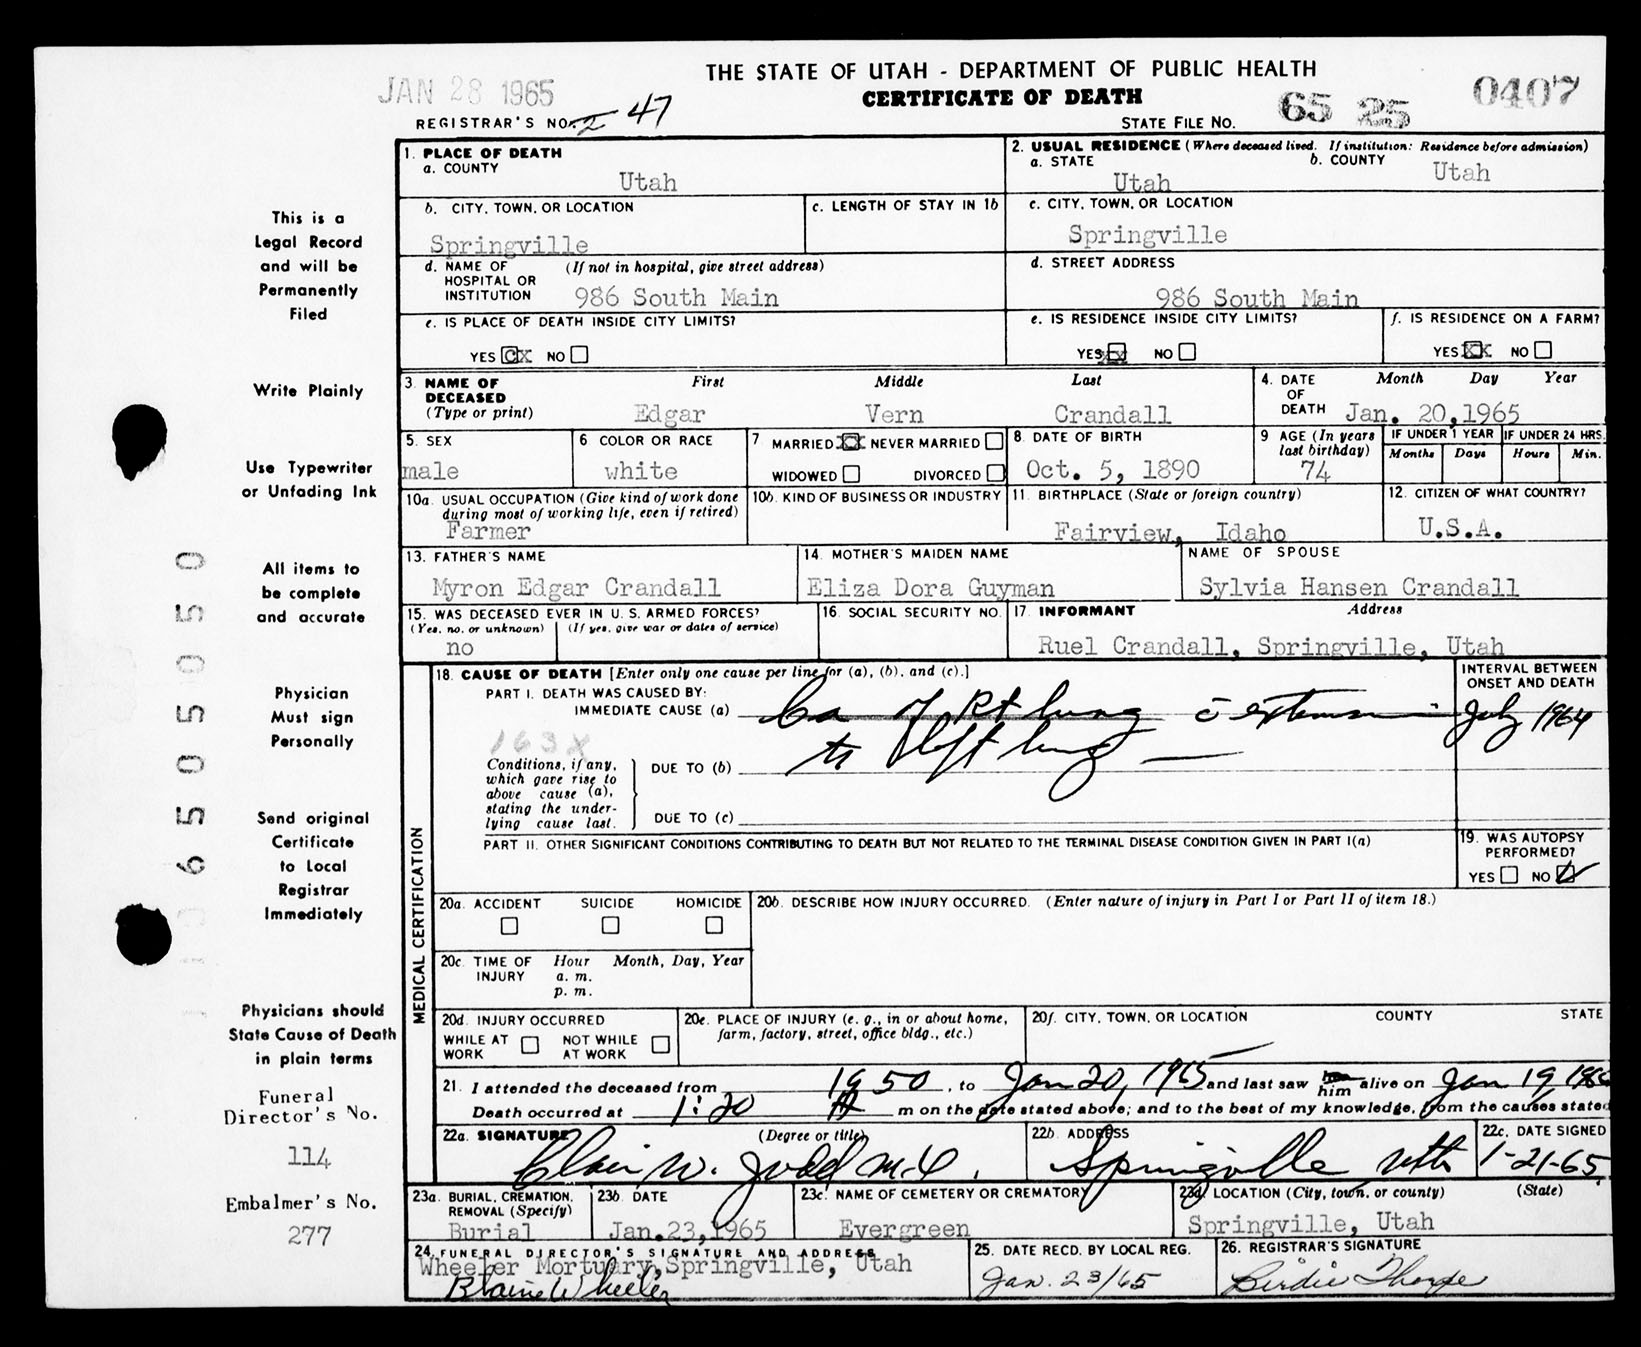 THE STATE OF UTAH - DEPARTMENT OF PUBLIC HEALTH
JAN 28 1965
CERTIFICATE OF DEATH
REGISTRAR'S NO. 47
STATE FILE NO. 65 25 0407
1. PLACE OF DEATH
a. COUNTY
Utah
2. USUAL RESIDENCE (Where deceased lived. If institution: Residence before admission)
a. STATE
Utah
b. COUNTY
Utah
b. CITY, TOWN, OR LOCATION
Springville
c. LENGTH OF STAY IN 1b
c. CITY, TOWN, OR LOCATION
Springville
d. NAME OF HOSPITAL OR INSTITUTION (If not in hospital, give street address)
986 South Main
d. STREET ADDRESS
986 South Main
e. IS PLACE OF DEATH INSIDE CITY LIMITS?
YES NO
e. IS RESIDENCE INSIDE CITY LIMITS?
YES XX NO
f. IS RESIDENCE ON A FARM?
YES XX NO
3. NAME OF DECEASED (Type or print)
First Middle Last
Edgar Vern Crandall
4. DATE OF DEATH
Month Day Year
Jan. 20,1965
5. SEX
male
6 COLOR OR RACE
white
7 MARRIED XX NEVER MARRIED
WIDOWED DIVORCED
8. DATE OF BIRTH
Oct. 5, 1890
9 AGE (In years last birthday)
74
IF UNDER 1 YEAR
Months Days
IF UNDER 24 HRS.
Hours Min.
10a. USUAL OCCUPATION (Give kind of work done during most of working life, even if retired)
Farmer
10b. KIND OF BUSINESS OR INDUSTRY
11. BIRTHPLACE (State or foreign country)
Fairview, Idaho
12. CITIZEN OF WHAT COUNTRY?
U.S.A.
13. FATHER'S NAME
Myron Edgar Crandall
14. MOTHER'S MAIDEN NAME
Eliza Dora Guyman
NAME OF SPOUSE
Sylvia Hansen Crandall
15. WAS DECEASED EVER IN U. S. ARMED FORCES?
(Yes, no, or unknown) (If yes, give war or dates of service)
no
16. SOCIAL SECURITY NO.
17. INFORMANT Address
Ruel Crandall, Springville, Utah
MEDICAL CERTIFICATION
18. CAUSE OF DEATH [Enter only one cause per line for (a), (b), and (c).]
PART I. DEATH WAS CAUSED BY:
IMMEDIATE CAUSE (a) Ca of Rt lung c̄ extension
to left lung
INTERVAL BETWEEN ONSET AND DEATH
July 1964
163X
Conditions, if any,
which gave rise to
above cause (a),
stating the under-
lying cause last.
DUE TO (b)
DUE TO (c)
PART II. OTHER SIGNIFICANT CONDITIONS CONTRIBUTING TO DEATH BUT NOT RELATED TO THE TERMINAL DISEASE CONDITION GIVEN IN PART I(a)
19. WAS AUTOPSY PERFORMED?
YES NO
20a. ACCIDENT SUICIDE HOMICIDE
20b. DESCRIBE HOW INJURY OCCURRED. (Enter nature of injury in Part I or Part II of item 18.)
20c. TIME OF INJURY
Hour Month, Day, Year
a. m.
p. m.
20d. INJURY OCCURRED
WHILE AT WORK NOT WHILE AT WORK
20e. PLACE OF INJURY (e. g., in or about home, farm, factory, street, office bldg., etc.)
20f. CITY, TOWN, OR LOCATION COUNTY STATE
21. I attended the deceased from 1950, to Jan 20, 1965 and last saw him alive on Jan 19, 
Death occurred at 1:20 A m on the date stated above; and to the best of my knowledge, from the causes stated
22a. SIGNATURE (Degree or title)
Blair W. Judd M.D.
22b. ADDRESS
Springville Utah
22c. DATE SIGNED
1-21-65
23a. BURIAL, CREMATION, REMOVAL (Specify)
Burial
23b. DATE
Jan.23,1965
23c. NAME OF CEMETERY OR CREMATORY
Evergreen
23d. LOCATION (City, town, or county) (State)
Springville, Utah
24. FUNERAL DIRECTOR'S SIGNATURE AND ADDRESS
Wheeler Mortuary,Springville, Utah
Blaine W Wheeler
25. DATE RECD. BY LOCAL REG.
Jan. 23/65
26. REGISTRAR'S SIGNATURE
Birdie Thorpe
This is a
Legal Record
and will be
Permanently
Filed
Write Plainly
Use Typewriter
or Unfading Ink
All items to
be complete
and accurate
Physician
Must sign
Personally
Send original
Certificate
to Local
Registrar
Immediately
Physicians should
State Cause of Death
in plain terms
Funeral
Director's No.
114
Embalmer's No.
277
6 5 0 5 0 5 0